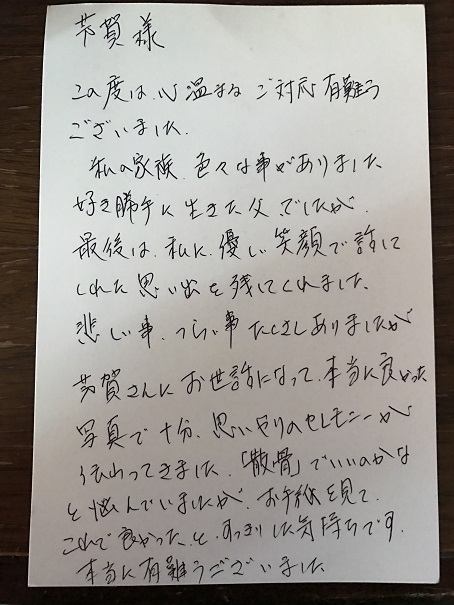 芳賀様
この度は、心温まるご対応有難う
ございました。
私の家族、色々な事がありました
好き勝手に生きた父でしたが、
最後は、私に、優しい笑顔で話して
くれた思い出を残してくれました。
悲しい事、つらい事たくさんありましたが
芳賀さんにお世話になって、本当に良かった
写真で十分、思いやりのセレモニーが
伝わってきました。「散骨」でいいのかな
と悩んでいましたが、お手紙を見て、
これで良かった、と、すっきりした気持ちです。
本当に有難うございました